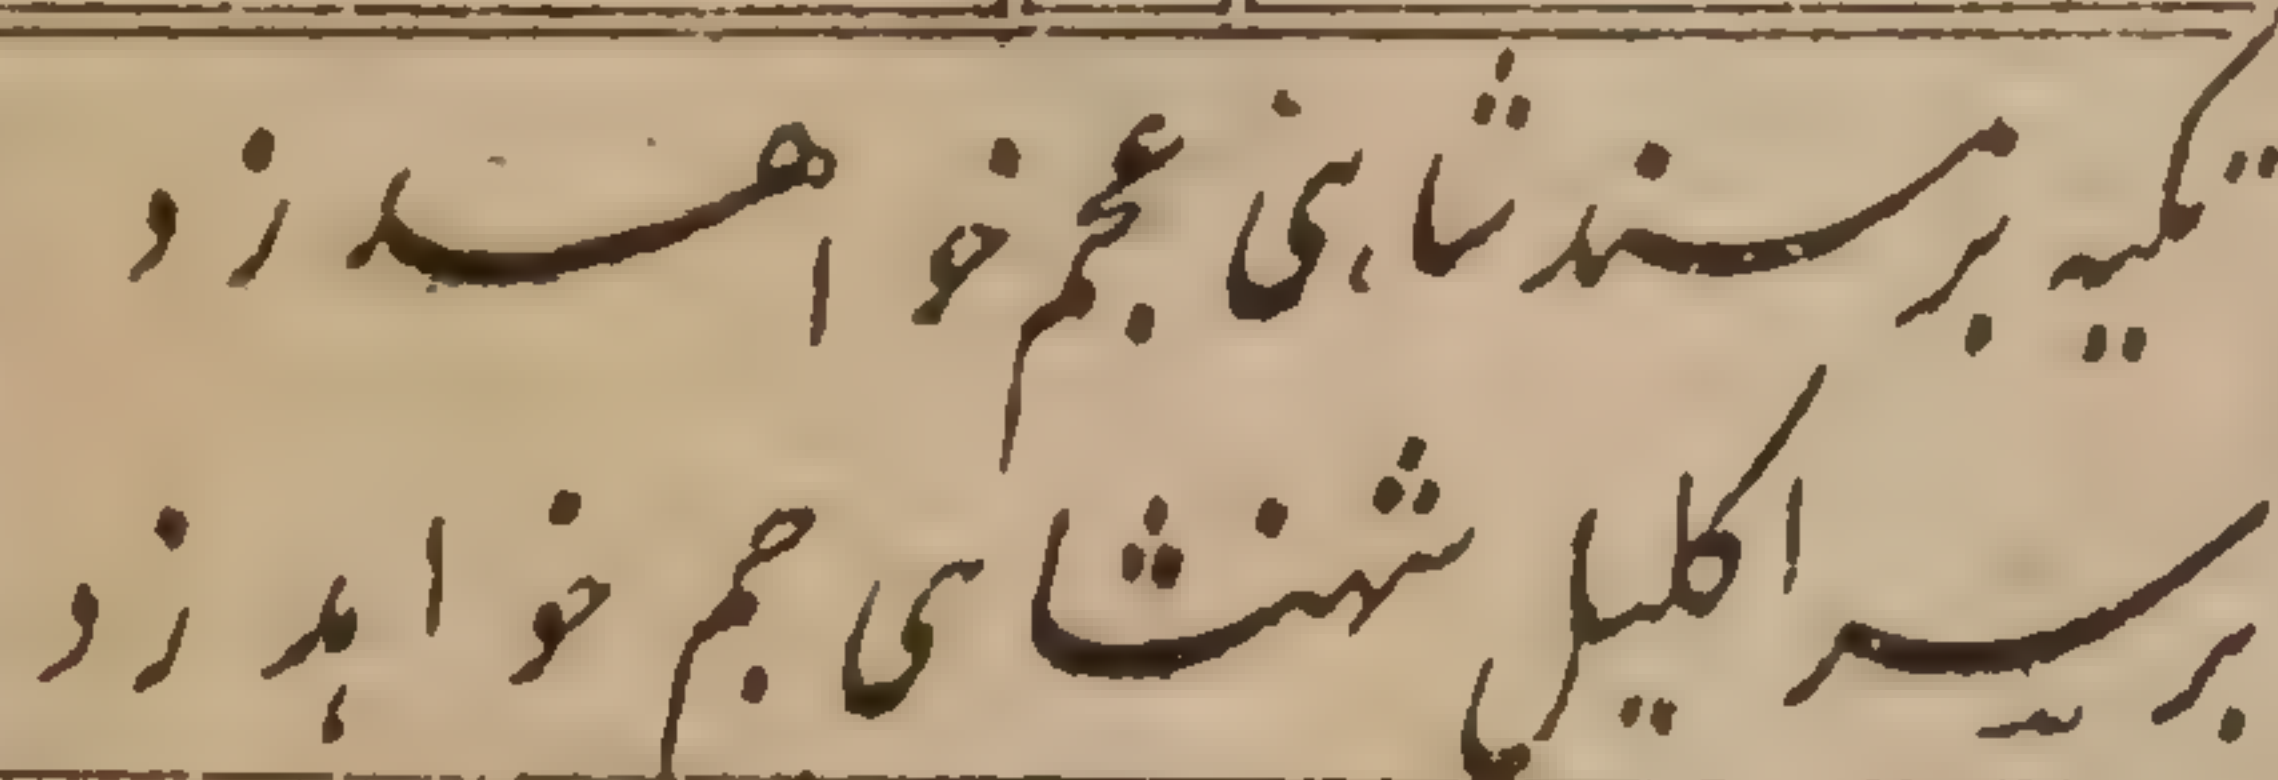 تکیه بر مسند شاهی عجم خواهد زد
بر سر اکلیل شهنشاهی جم خواهد زد